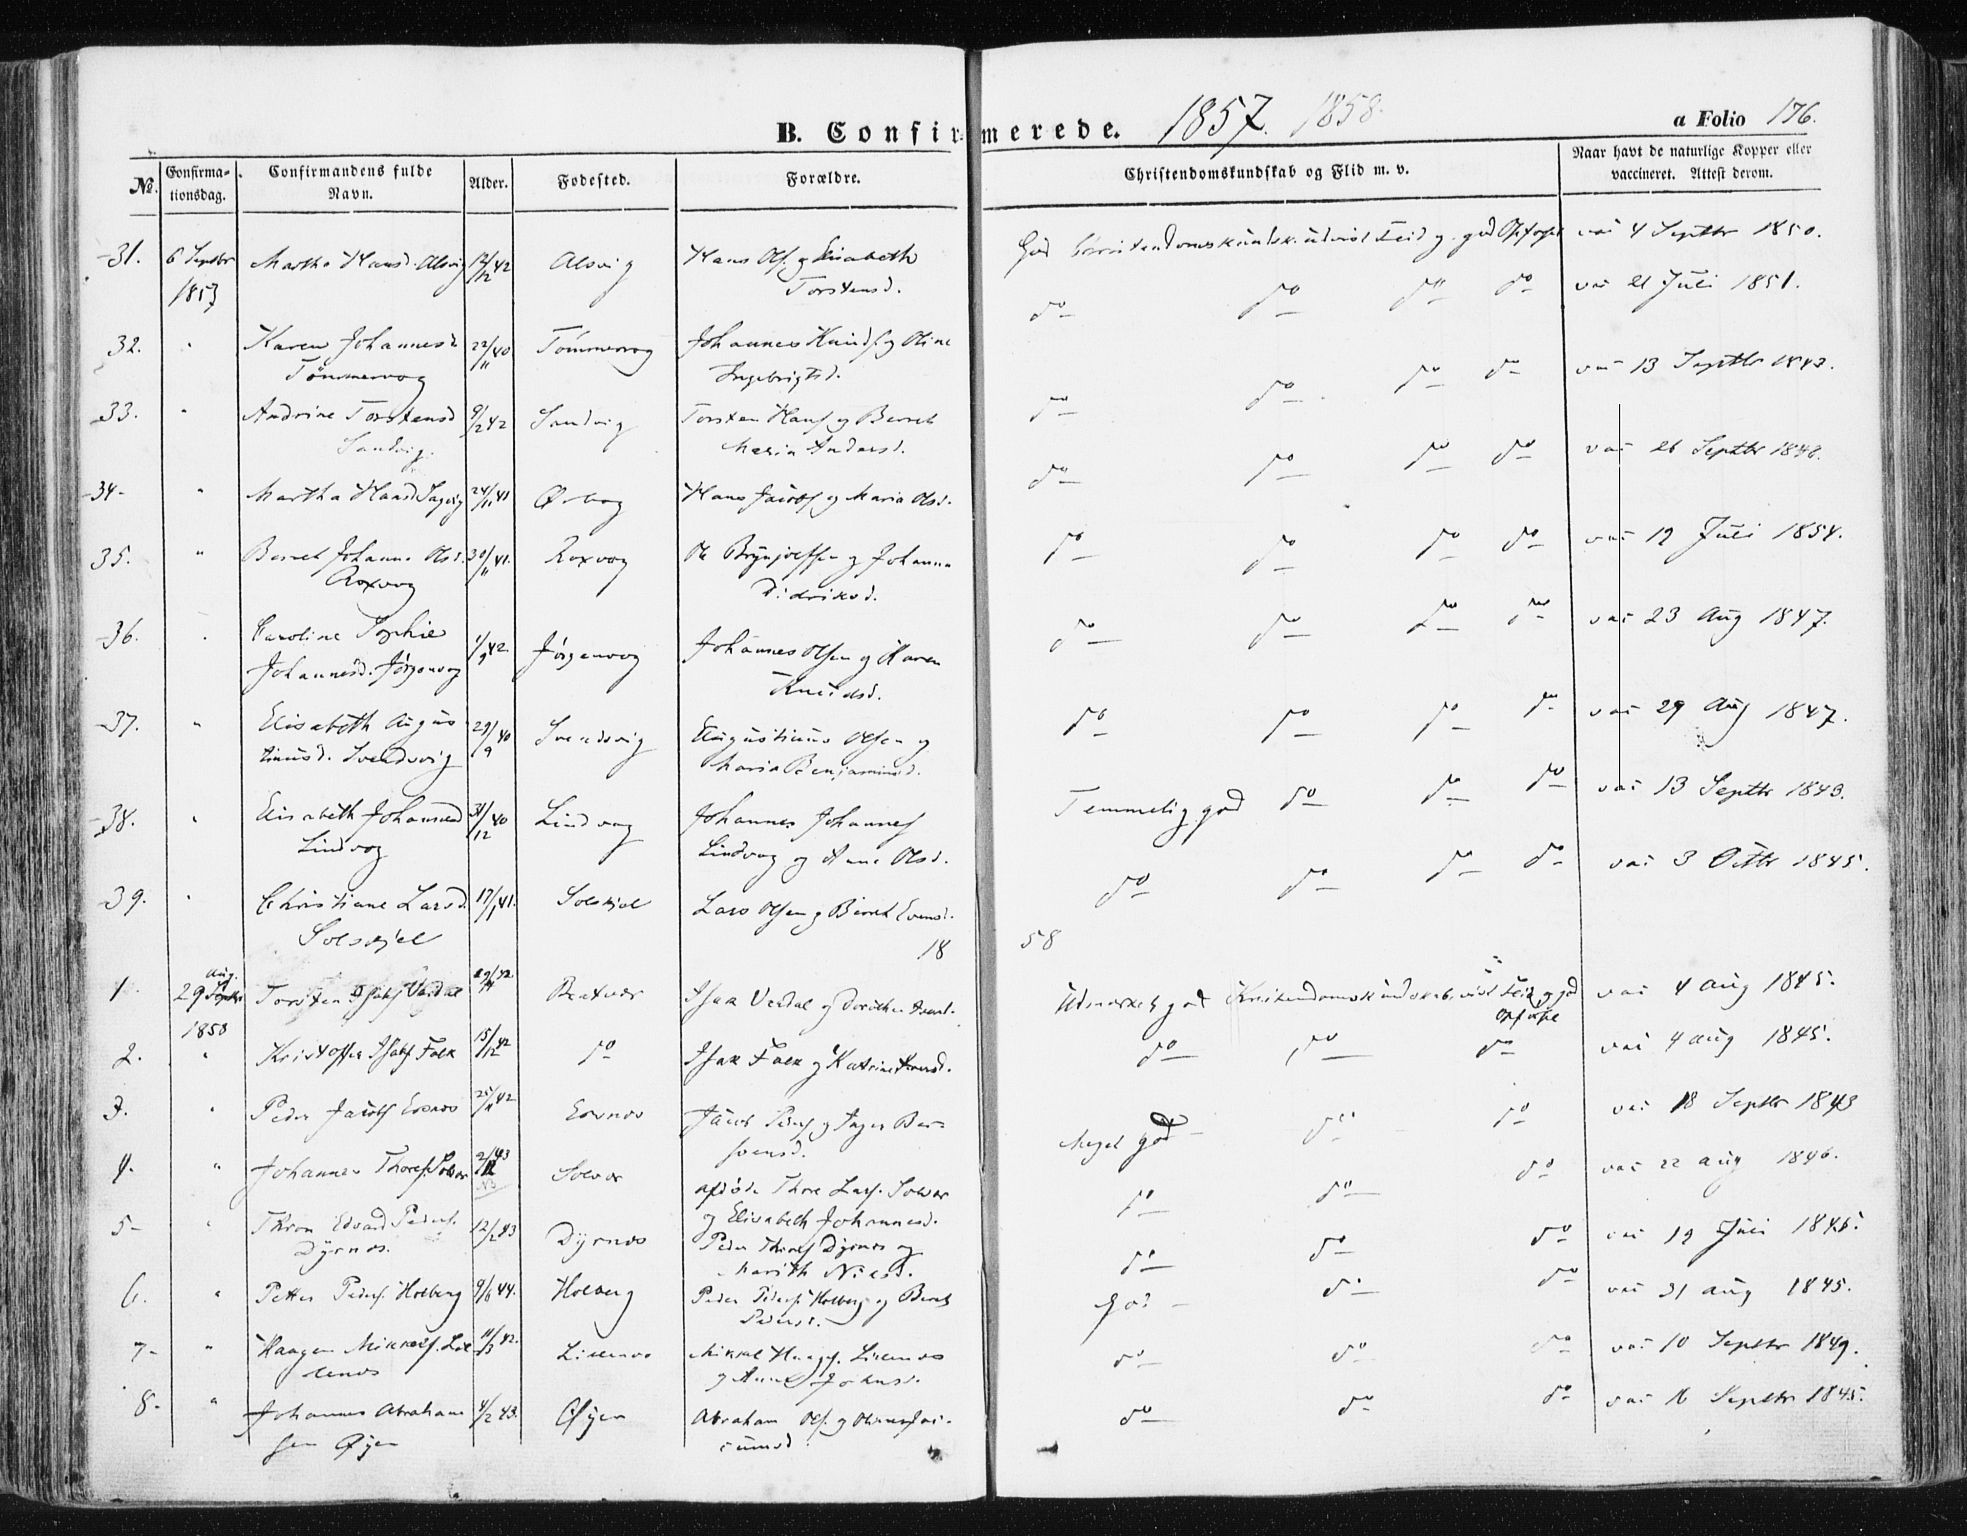 B. Confirmerede. 1857. 1858.
a Folio 176.
No. Confirmationsdag. Confirmandens fulde Navn. Alder. Fødested. Forældre. Christendomskundskab og Flid m. v. Naar havt de naturlige Kopper eller vaccineret. Attest derom.
31. 6 Septbr 1857 Martha Hansd. Alsvig 12/12 42 Alsvig Hans Ols. og Elisabeth Torstensd. God Christendomskundsk. udvist Flid og god Opførsel vac 4 Septbr 1850.
32. " Karen Johannesd. Tømmervog 22/11 40 Tømmervog Johannes Knuds. og Oline Ingebrigtsd. do do do do vac 21 Juli 1851.
33. " Andrine Torstensd Sandvig. 9/2 42 Sandvig Torsten Hans. og Beret Maria Andersd. do do do do vac 13 Septbr 1843.
34. " Martha Hansd 24/11 41 Hans Jacobs. og Maria Olsd. do do do do vac 26 Septbr 1848.
35. " Bereth Johanna Olsd. Roxvog 30/11 41. Roxvog Ole Brynjolfsen og Johanna Didriksd. do do do do vac 19 Juli 1854.
36. " Caroline Sophie Johannesd. Jørgenvog 1/9 42 Jørgenvog Johannes Olsen og Karen Knudsd. do do do do vac 23 Aug 1847.
37. " Elisabeth Augustinusd. Svendsvig 29/9 40 Svendsvig Augustinus Olsen og Maria Benjaminsd. do do do do vac 29 Aug 1847.
38. " Elisabeth Johannesd Lindvog 31/12 40 Lindvog Johannes Johannes. Lindvog og Anne Olsd. Temmelig god do do do vac 13 Septbr 1843.
39. " Christiane Larsd. Solskjel 17/1 41. Solskjel Lars Olsen og Beret Evensd. do do do do vac 3 Octbr 1845.
18 58
1. 29 Aug. 1858 Torsten Isaks. Vardal 42 Isak Vardal og Dorothea Udmærket god Kristendomskundskab, vist Flid og god Opførsel vac 4 Aug 1845.
2. " Kristoffer Isaks. Falk 15/12 42 do Isak Falk og Katrine do do do vac 4 Aug 1845.
3. " Peder Jacobs. Esnes 25/11 42 Esnes Jacob Peders. og Inger Bersvensd. Meget god do do vac 18 Septbr 1843
4. " Johannes Thores. Solvær 2/ 43 Solvær afdøde Thore Lars. Solvær og Elisabeth Johannesd. do do do vac 22 Aug 1846.
5. " Thron Edvard Peders. Dyrnes. 12/2 43 Dyrnes Peder Throns. Dyrnes og Marith Nilsd. do do do vac 19 Juli 1845.
6. " Petter Peders. Holberg 9/6 44. Holberg Peder Peders. Holberg og Beret Pedersd. God do do vac 31 Aug 1845.
7. " Haagen Mikkels. Lillenes 11/3 42. Lillenes Mikkel Haags. Lillenes og Anne Johnsd. do do do vac 10 Septbr 1849.
8. " Johannes Abrahamsen Øyen 4/2 43. Øyen Abraham Ols. og do do do vac 16 Septbr 1845.